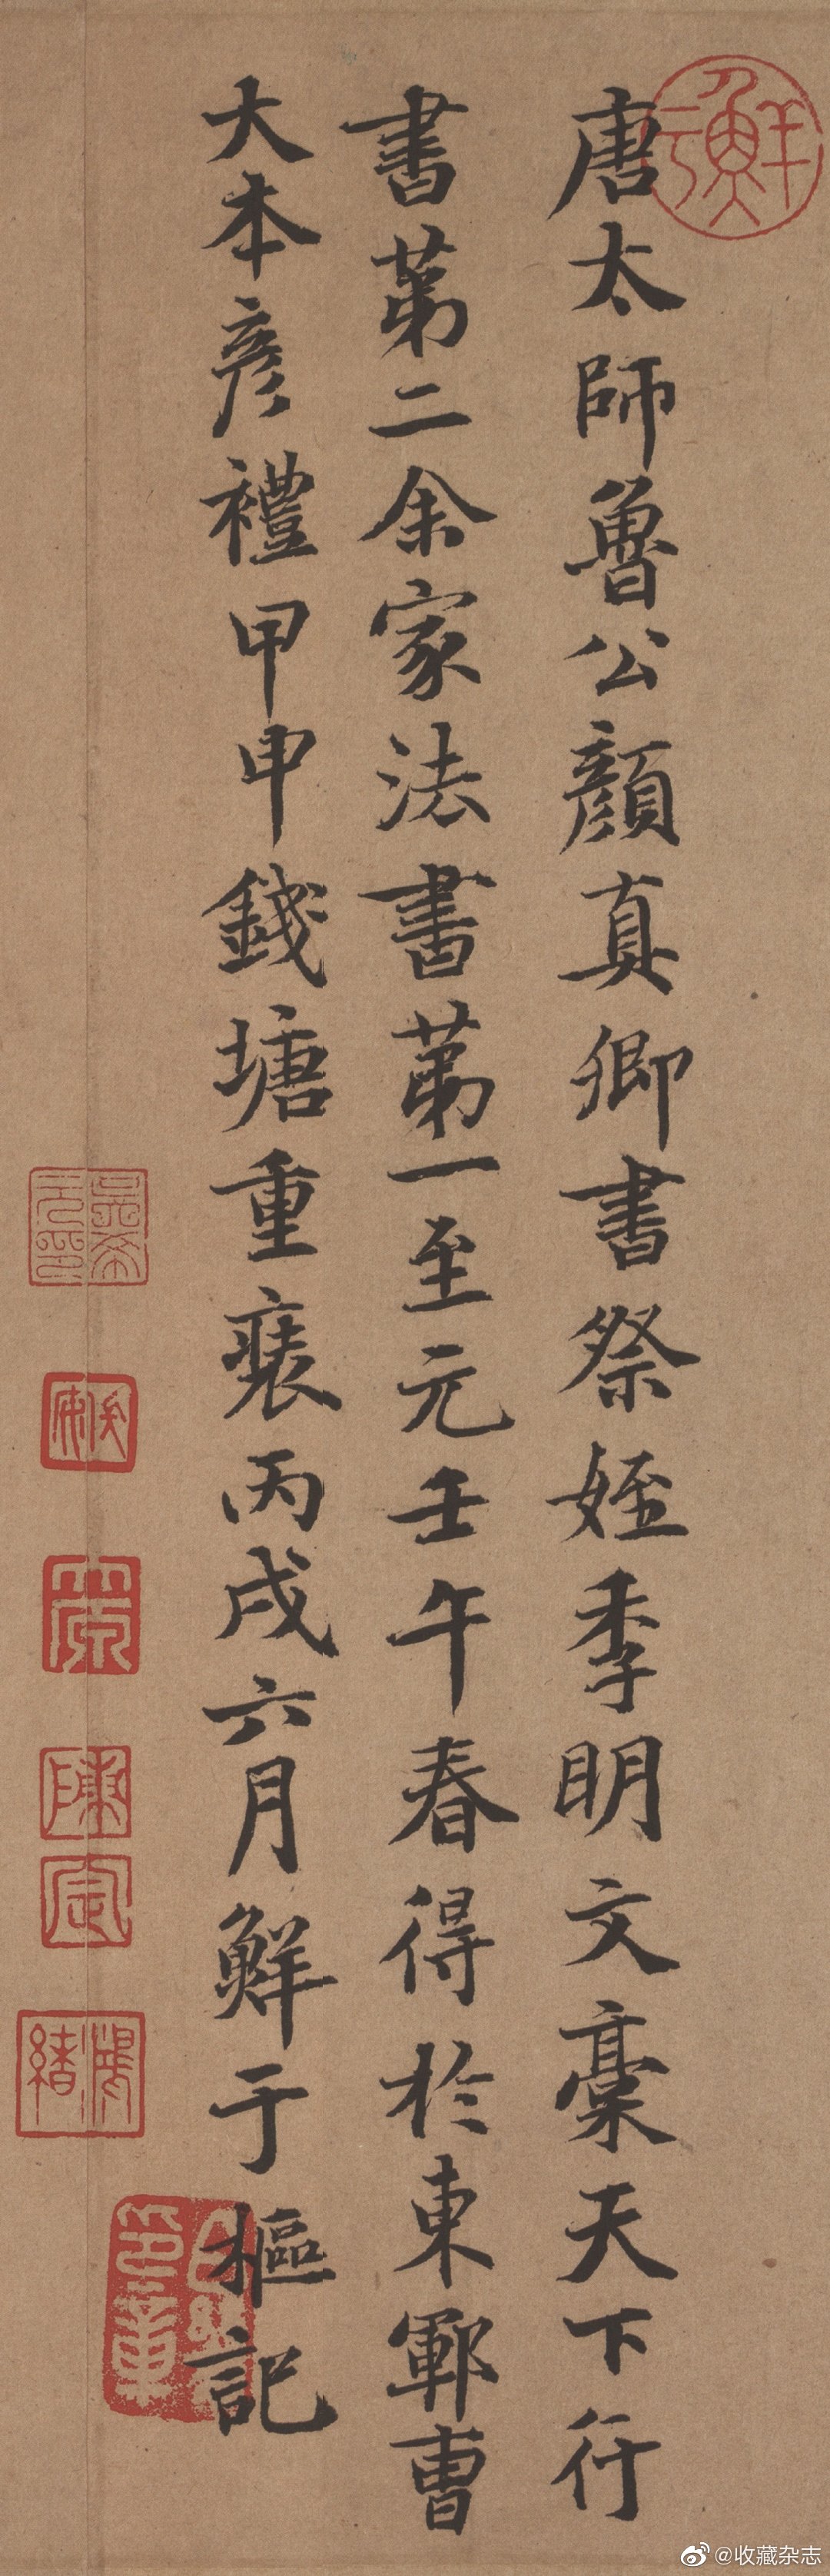 唐太師魯公顏真卿書祭姪季明文稾天下行
書苐二余家法書苐一至元壬午春得於東鄆曹
大本彥禮甲申錢塘重裱丙戌六月鮮于樞記
鮮于
@收藏杂志